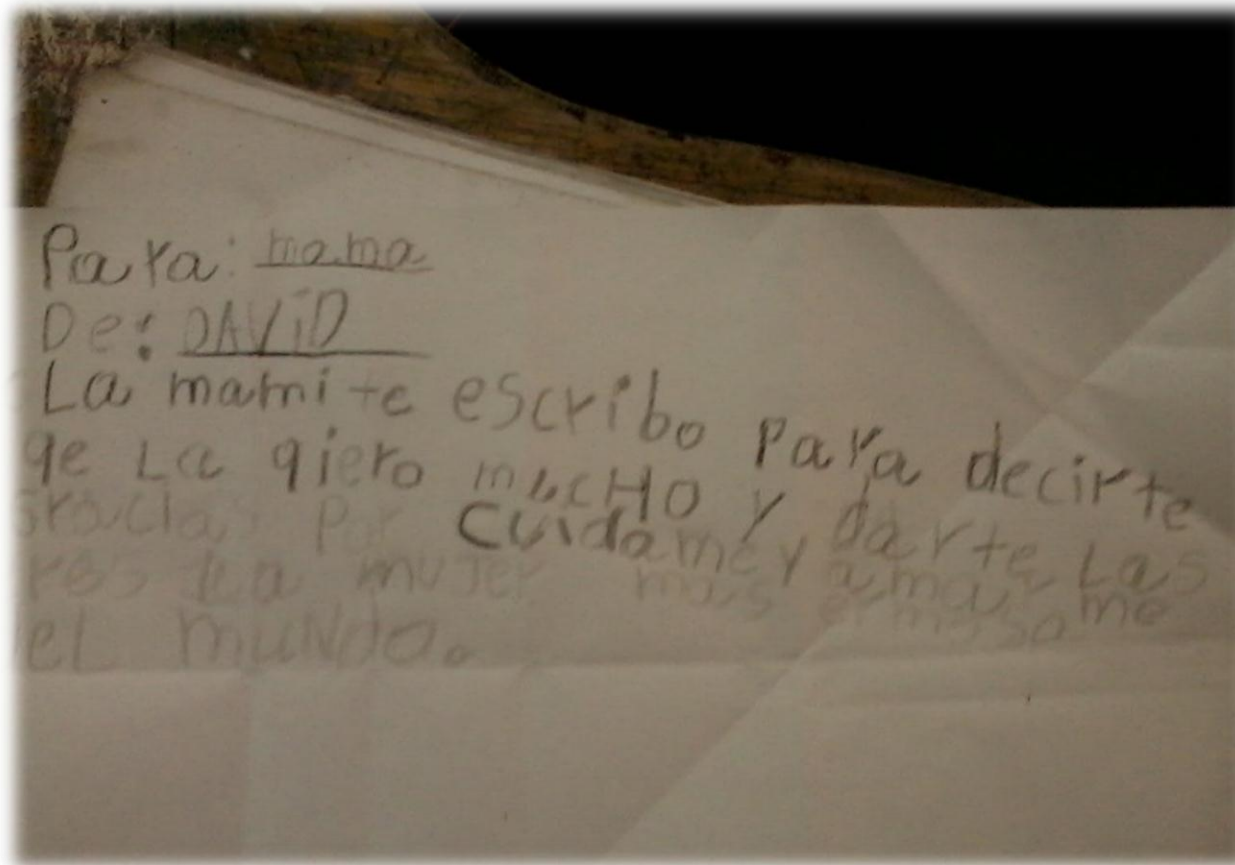 Para: mama
De: DAViD
La mami te escribo Para decirte
qe La qiero mucHO y darte Las
gracias Por Cuidame y amarme
eres La mujer mas ermosa
el mundo.